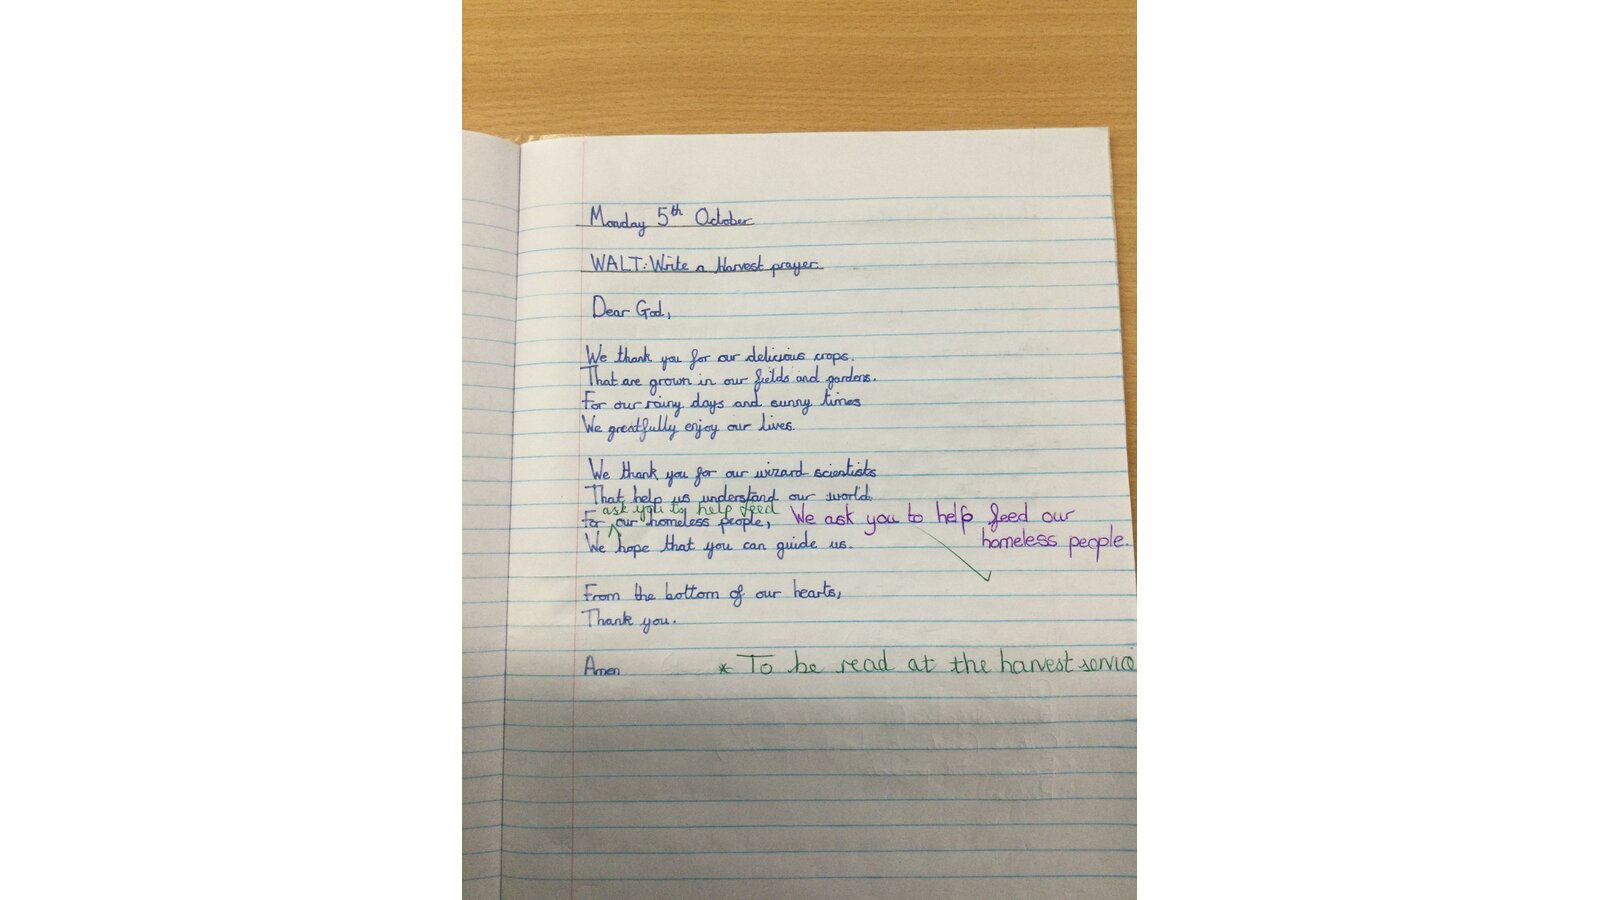 Monday 5th October
WALT: Write a Harvest prayer.
Dear God,
We thank you for our delicious crops.
That are grown in our fields and gardens.
For our rainy days and sunny times
We greatfully enjoy our lives.
We thank you for our wizard scientists
That help us understand our world.
ask you to help feed
For our homeless people, We ask you to help feed our
homeless people.
We hope that you can guide us.
From the bottom of our hearts,
Thank you.
Amen
* To be read at the harvest service